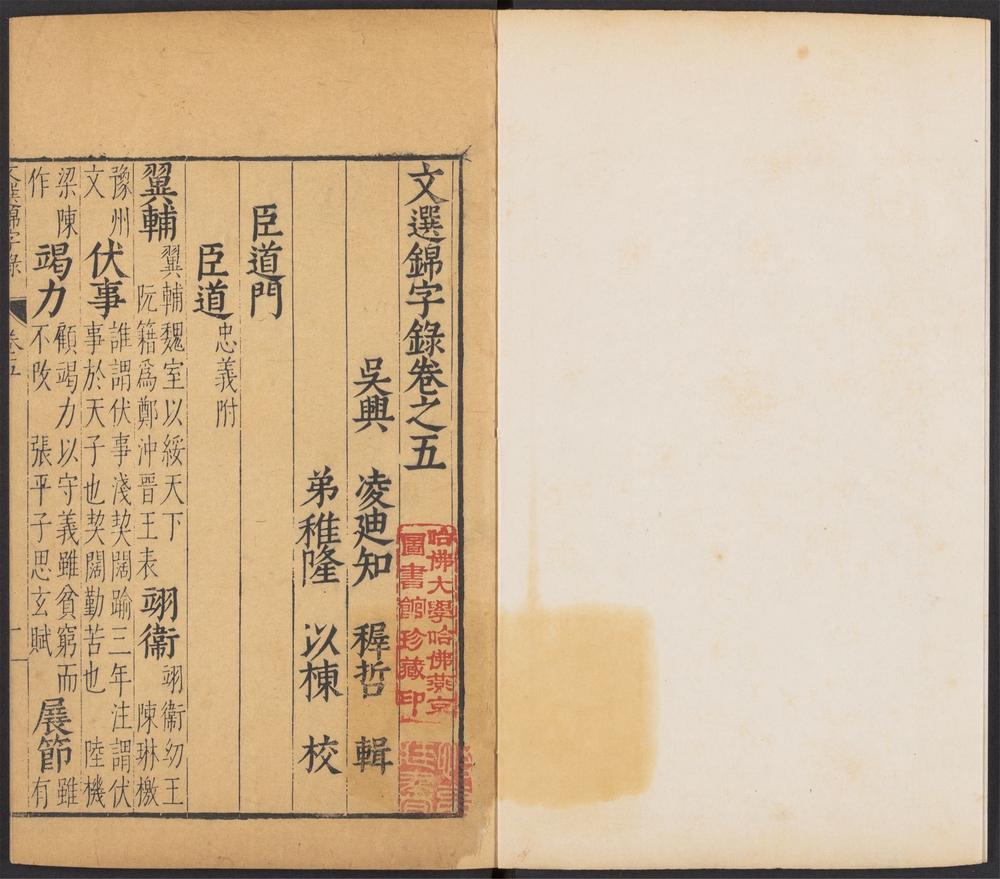 文選錦字錄卷之五
吳興 凌廸知 穉哲 輯
弟稚隆 以棟 校
臣道門
臣道 忠義附
翼輔 翼輔魏室以綏天下 阮籍爲鄭沖晉王表 翊衞 翊衞幼王 陳琳檄
豫州文 伏事 誰謂伏事淺契闊踰三年注謂伏事於天子也契闊勤苦也 陸機
梁陳作 竭力 顧竭力以守義雖貧窮而不改 張平子思玄賦 展節 雖有
文選錦字錄 卷五 一
哈佛大學哈佛燕京
圖書館珍藏印